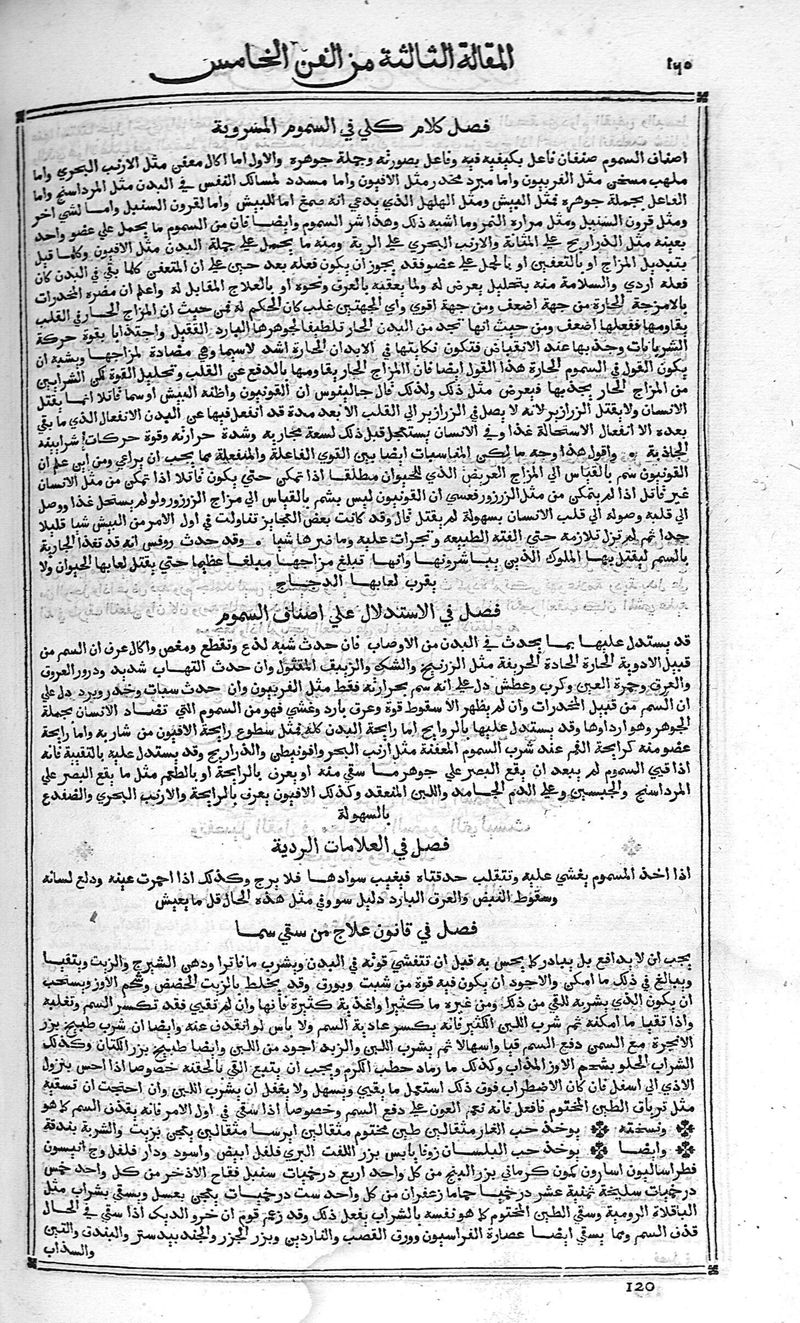 المقالة الثالثة من الفن الخامس
١٢٥
فصل كلام كلي في السموم المشروبة
اصناف السموم صنفان فاعل بكيفيه فيه وفاعل بصورته وجملة جوهره والاول اما اكال معفن مثل الارنب البحري واما
ملهب مسخن مثل الفربيون واما مبرد مخدر مثل الافيون واما مسدد لمسالك النفس في البدن مثل المرداسنج واما
الفاعل بجملة جوهره فمثل البيش ومثل الهلهل الذي يدعي انه صمغ اما للبيش واما لقرون السنبل واما لشي اخر
ومثل قرون السنبل ومثل مرارة النمر وما اشبه ذلك وهذا شر السموم وايضا فان من السموم ما يحمل علي عضو واحد
بعينه مثل الذراريح علي المثانة والارنب البحري علي الرية ومنه ما يحمل علي جملة البدن مثل الافيون وكلها قتل
بتبديل المزاج او بالتعفين او بالحمل علي عضو فقد يجوز ان يكون فعله بعد حين علي ان المتعفن كلما بقي في البدن كان
فعله اردي والسلامة منه بتحليل يعرض له ولما يعقبه بالعرق ونحوه او بالعلاج المقابل له واعلم ان مضره المخدرات
بالامزجة الحارة من جهة اضعف ومن جهة اقوي واي الجهتين غلب كان الحكم له فمن حيث ان المزاج الحار في القلب
يقاومها ففعلها اضعف ومن حيث انها تجد من البدن الحار تلطيفا لجوهرها البارد الثقيل واجتذابا بقوة حركة
الشريانات وجذبها عند الانقباض فتكون نكايتها في الابدان الحارة اشد لاسيما وهي مضادة لمزاجها ويشبه ان
يكون القول في السموم الحارة هذا القول ايضا فان المزاج الحار يقاومها بالدفع عن القلب وتحليل القوة لكن الشرايين
من المزاج الحار يجذبها فيعرض مثل ذلك ولذلك قال جالينوس ان القونيون واظنه البيش او سما قاتلا انما يقتل
الانسان ولا يقتل الزرازير لانه لا يصل في الزرازير الي القلب الا بعد مدة قد انفعل فيها عن البدن الانفعال الذي ما بقي
بعده الا انفعال الاستحالة غذا وفي الانسان يستعجل قبل ذلك لسعة مجاريه وشدة حرارته وقوة حركات شرايينه
الجاذبة واقول هذا وجه ما لكن المناسبات ايضا بين القوي الفاعلة والمنفعلة مما يجب ان يراعي ومن اين علم ان
القونيون سم بالقياس الي المزاج العريض الذي للحيوان مطلقا اذا تمكن حتي يكون قاتلا اذا تمكن من مثل الانسان
غير قاتل اذا لم يتمكن من مثل الزرزور فعسي ان القونيون ليس بسم بالقياس الي مزاج الزرزور ولو لم يستحل غذا ووصل
الي قلبه وصوله الي قلب الانسان بسهولة لم يقتل قال وقد كانت بعض العجايز تناولت في اول الامر من البيش شيا قليلا
جدا ثم لم تزل تلازمه حتي الفته الطبيعه وتجرات عليه وما ضرها شيا وقد حدث روفس انه قد تغذا الجارية
بالسم ليقتل بها الملوك الذين يباشرونها وانها تبلغ مزاجها مبلغا عظيما حتي يقتل لعابها الحيوان ولا
يقرب لعابها الدجاج
فصل في الاستدلال علي اصناف السموم
قد يستدل عليها بما يحدث في البدن من الاوصاب فان حدث شبه لذع وتقطع ومغص واكال عرف ان السم من
قبيل الادوية الحارة الحادة الحريفة مثل الزرنيخ والشك والزيبق المقتول وان حدث التهاب شديد ودرور العروق
والعرق وحمرة العين وكرب وعطش دل علي انه سم بحرارته فقط مثل الفربيون وان حدث سبات وخدر وبرد دل علي
ان السم من قبيل المخدرات وان لم يظهر الا سقوط قوة وعرق بارد وغشي فهو من السموم التي تضاد الانسان بجملة
الجوهر وهو ارداوها وقد يستدل عليها بالروايح اما رايحة البدن كله فمثل سطوع رايحة الافيون من شاربه واما رايحة
عضو منه كرايحة الفم عند شرب السموم المعفنة مثل ارنب البحر وافونيطن والذراريح وقد يستدل عليه بالتقيية فانه
اذا قيي السموم لم يبعد ان يقع البصر علي جوهر ما سقي منه او يعرف بالرايحة او بالطعم مثل ما يقع البصر علي
المرداسنج والجبسين وعلي الدم الجامد واللبن المنعقد وكذلك الافيون يعرف بالرايحة والارنب البحري والضفدع
بالسهولة
فصل في العلامات الردية
اذا اخذ المسموم يغشي عليه وتتقلب حدقتاه فيغيب سوادها فلا يرج وكذلك اذا احمرت عينه ودلع لسانه
وسقوط النبض والعرق البارد دليل سوو في مثل هذه الحال قل ما يعيش
فصل في قانون علاج من سقي سما
يجب ان لا يدافع بل يبادر كما يحس به قبل ان تتفشي قوته في البدن ويشرب ما فاترا ودهن الشيرج والزيت ويتقيا
ويبالغ في ذلك ما امكن والاجود ان يكون فيه قوة من شبت وبورق وقد يخلط بالزيت الخضض وشحم الاوز ويستحب
ان يكون الذي يشربه للقي من ذلك ومن غيره ما كثيرا واغذية كثيرة فانها وان لم تقيي فقد تكسر السم وتغلبه
واذا تقيا ما امكنه ثم شرب اللبن الكثير فانه يكسر عادية السم ولا باس لو انقذف عنه وايضا ان شرب طبيخ بزر
الانجرة مع السمن دفع السم قيا واسهالا ثم يشرب اللبن والزبد اجود من اللبن وايضا طبيخ بزر الكتان وكذلك
الشراب الحلو بشحم الاوز المذاب وكذلك ما رماد حطب الكرم ويجب ان يتبع القي بالحقنه خصوصا اذا احس بنزول
الاذي الي اسفل فان كان الاضطراب فوق ذلك استعمل ما يقيي ويسهل ولا يغفل ان يشرب اللبن وان احتجت ان تسقيه
مثل ترياق الطين المختوم فافعل فانه نعم العون علي دفع السم وخصوصا اذا سقي في اول الامر فانه يقذف السم كما هو
ونسخته يوخذ حب الغار مثقالين طين مختوم مثقالين ايرسا مثقالين يعجن بزيت والشربة بندقة
وايضا يوخذ حب البلسان زوفا يابس بزر اللفت البري فلفل ابيض واسود ودار فلفل وج انيسون
فطراساليون اسارون كمون كرماني بزر البنج من كل واحد اربع درخميات سنبل فقاح الاذخر من كل واحد خمس
درخميات سليخة ثمنية عشر درخميا حماما زعفران من كل واحد ست درخميات يعجن بعسل ويسقي بشراب مثل
الباقلاة الرومية وسقي الطين المختوم كما هو نفسه بالشراب يفعل ذلك وقد زعم قوم ان خرو الديك اذا سقي في الحال
قذف السم ومما يسقي ايضا عصارة الفراسيون وورق القصب والناردين وبزر الجزر والجندبيدستر والبندق والتين
والسذاب
120